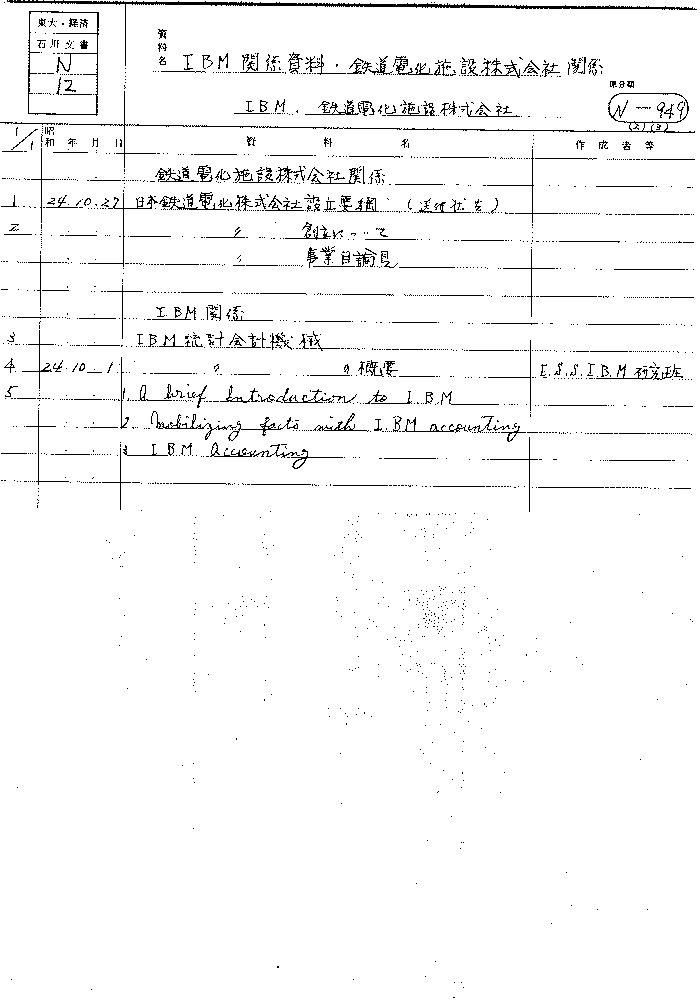 東大・経済
石川文書
N
12
資料名
IBM 関係資料・鉄道電化施設株式会社関係
IBM．鉄道電化施設株式会社
原分類
N－949
(2)(3)
1/1 昭和 年 月 日 資 料 名 作 成 者 等
鉄道電化施設株式会社関係
1 24.10.27 日本鉄道電化株式会社設立要綱 （送付状共）
2 〃 創立について
〃 事業目論見
IBM 関係
3 IBM 統計会計機械
4 24.10.1 〃 〃 概要 E.S.S.I.B.M 研究班
5 1. A brief Introduction to I.B.M
2. Mobilizing facts with I.BM accounting
3 I B M Accounting